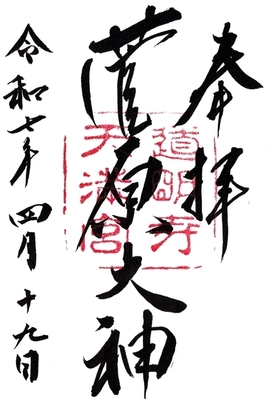 奉拝
菅原大神
道明寺
天満宮
令和七年四月十九日